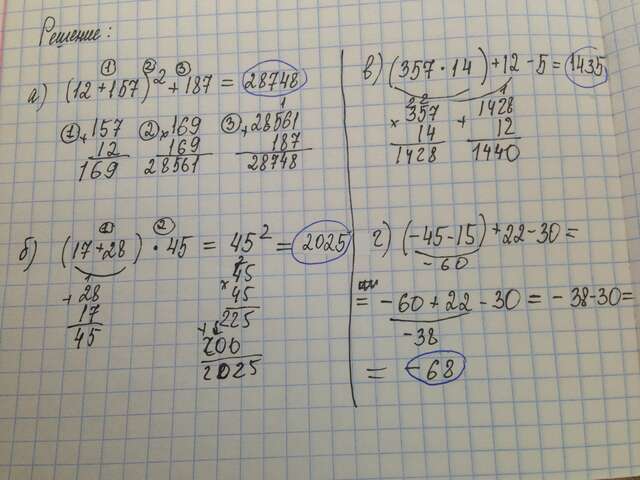 Решение:
а) (12+157)² + 187 = 28748
① ② ③
① +157
12
169
② ×169
169
28561
③ +28561
187
28748
1
б) (17+28) · 45 = 45² = 2025
① ②
1
+28
17
45
2
×45
45
225
+
200
2025
в) (357·14)+12-5=1435
22
×357
14
1428
1
+1428
12
1440
г) (-45-15)+22-30=
-60
= -60+22-30= -38-30=
-38
= -68